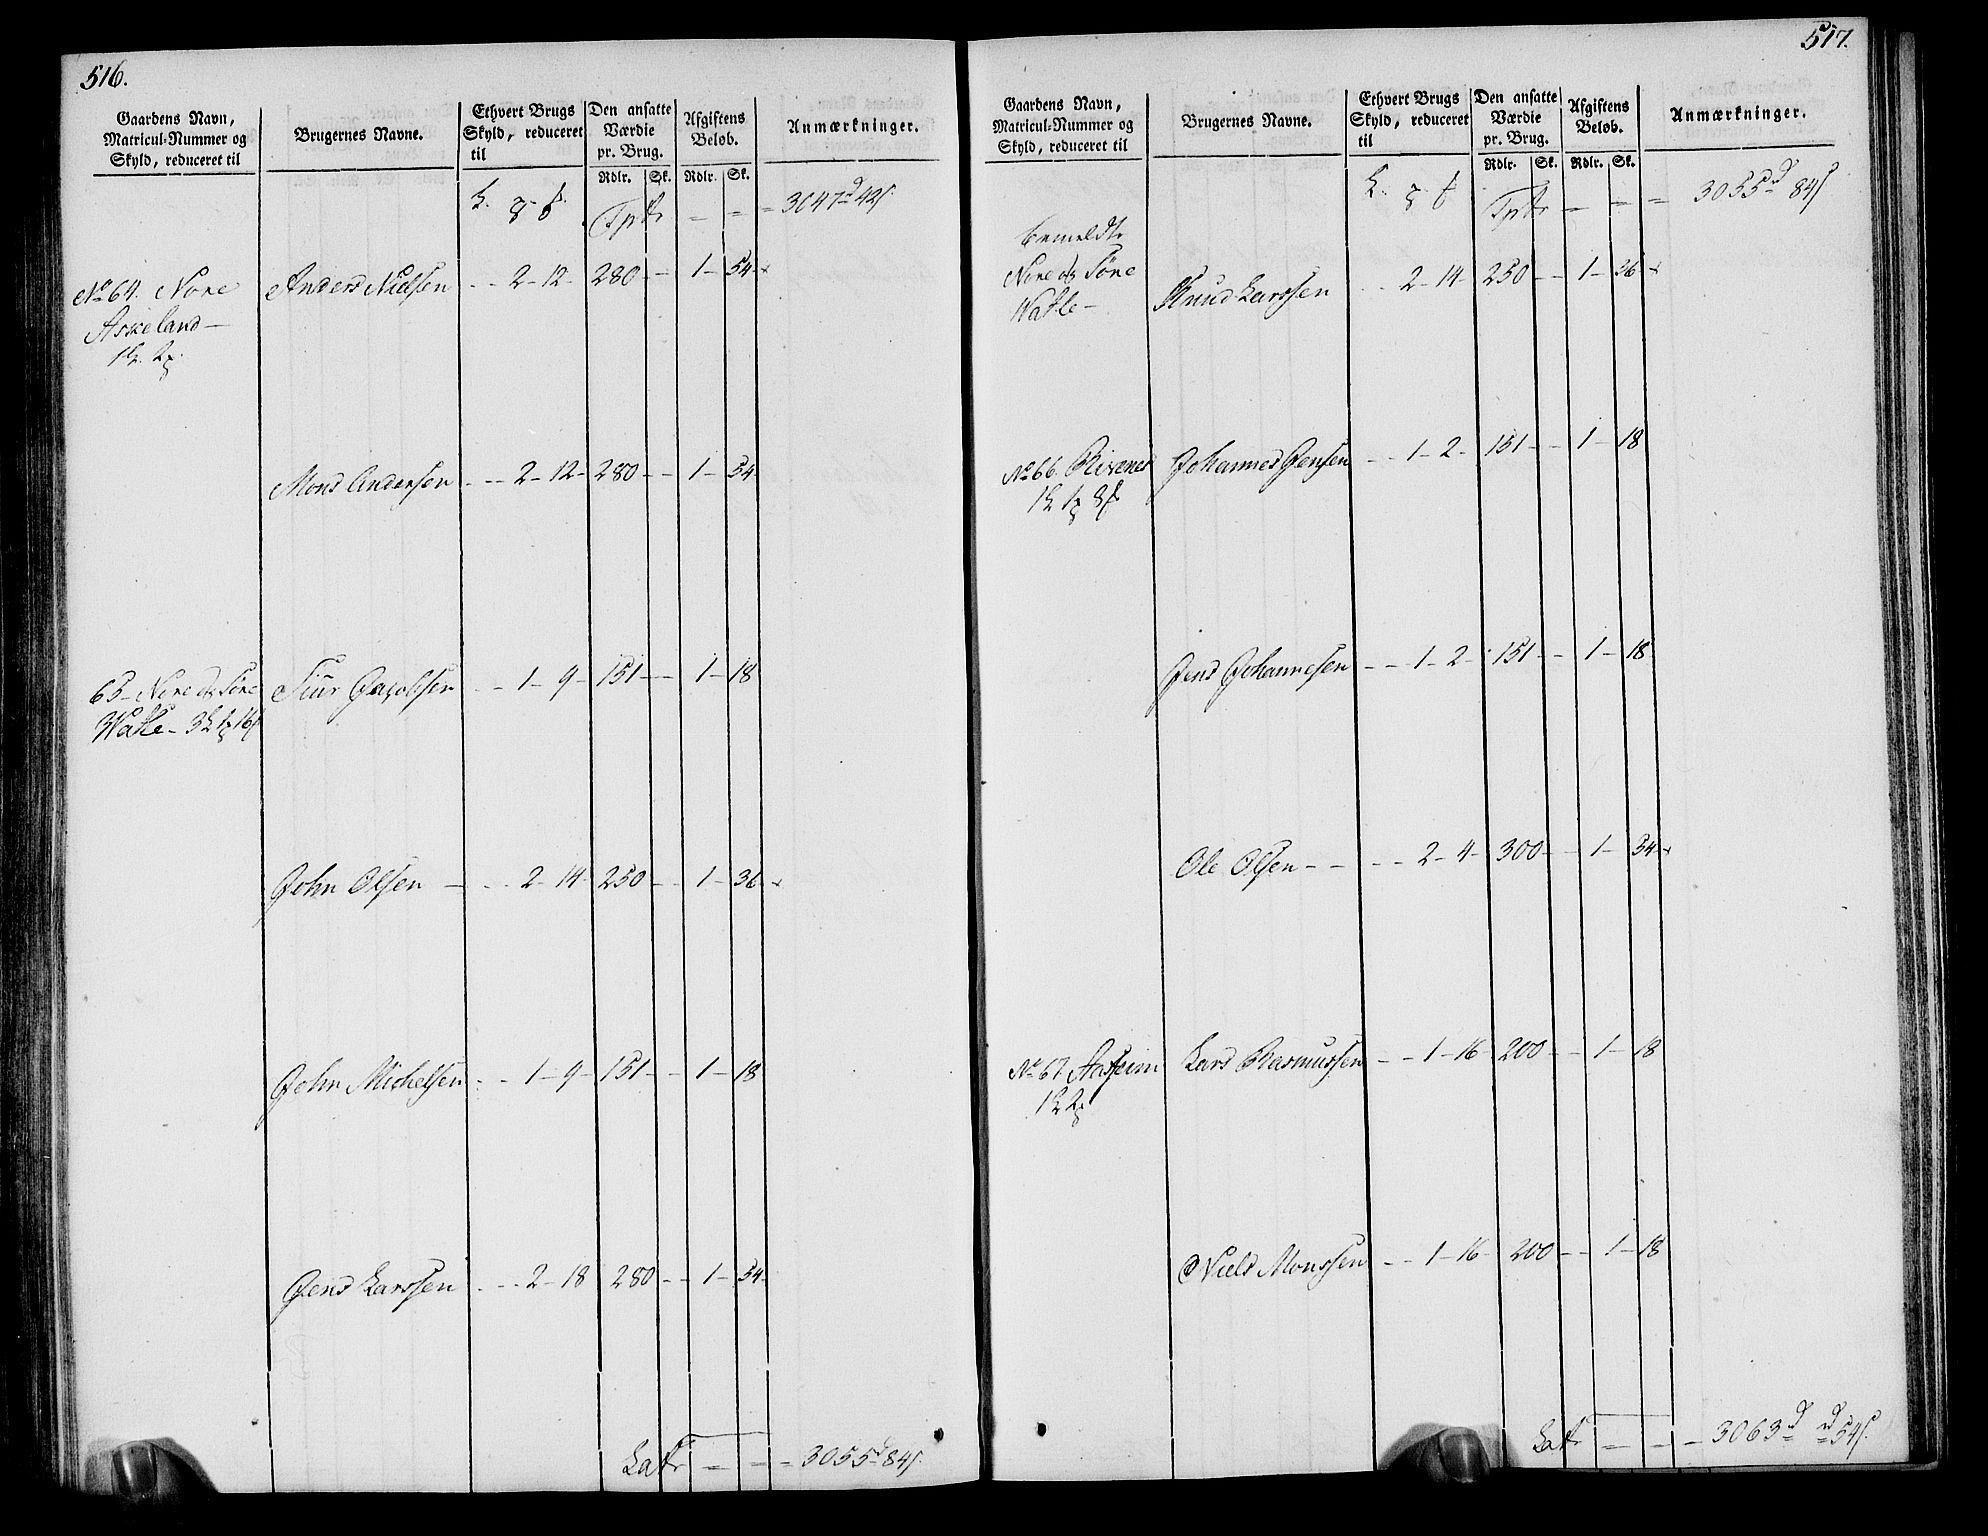 516.
Gaardens Navn, Matricul-Nummer og Skyld, reduceret til
Brugernes Navne.
Ethvert Brugs Skyld, reduceret til
Den ansatte Værdie pr. Brug.
Afgiftens Beløb.
Anmærkninger.
Rdlr. Sk. Rdlr. Sk.
Tpt = = = 3047d 42s.
No 64. Nore Anders Nielsen - - 2 - 12 - 280 - - 1 - 54
Askeland
Mons Andersen - - 2 - 12 - 280 - - 1 - 54
65 - Nore og Söre Siur Jacobsen - - 1 - 9 - 151 - - 1 - 18
Watle -
John Olsen - - - 2 - 14 - 250 - - 1 - 36
John Michelsen - - 1 - 9 - 151 - - 1 - 18
Jens Larssen - - 2 - 18 280 - - 1 - 54
Lat = = = 3055d 84s.
517.
Gaardens Navn, Matricul-Nummer og Skyld, reduceret til
Brugernes Navne.
Ethvert Brugs Skyld, reduceret til
Den ansatte Værdie pr. Brug.
Afgiftens Beløb.
Anmærkninger.
Rdlr. Sk. Rdlr. Sk.
Tpt = = = 3055d 84s
bemeldte
Nore og Söre Knud Larssen - - 2 - 14 - 250 - - 1 - 36
Watle -
No 66 Rivenes Johannes Jensen - - 1 - 2 - 151 - - 1 - 18
Jens Johannesen - - 1 - 2 - 151 - - 1 - 18
Ole Olsen - - - - 2 - 4 - 300 - - 1 - 54
No 67 Aasheim Lars Rasmussen - - 1 - 16 - 200 - - 1 - 18
Niels Monssen - - 1 - 16 - 200 - - 1 - 18
Lat = = = 3063d 54s.